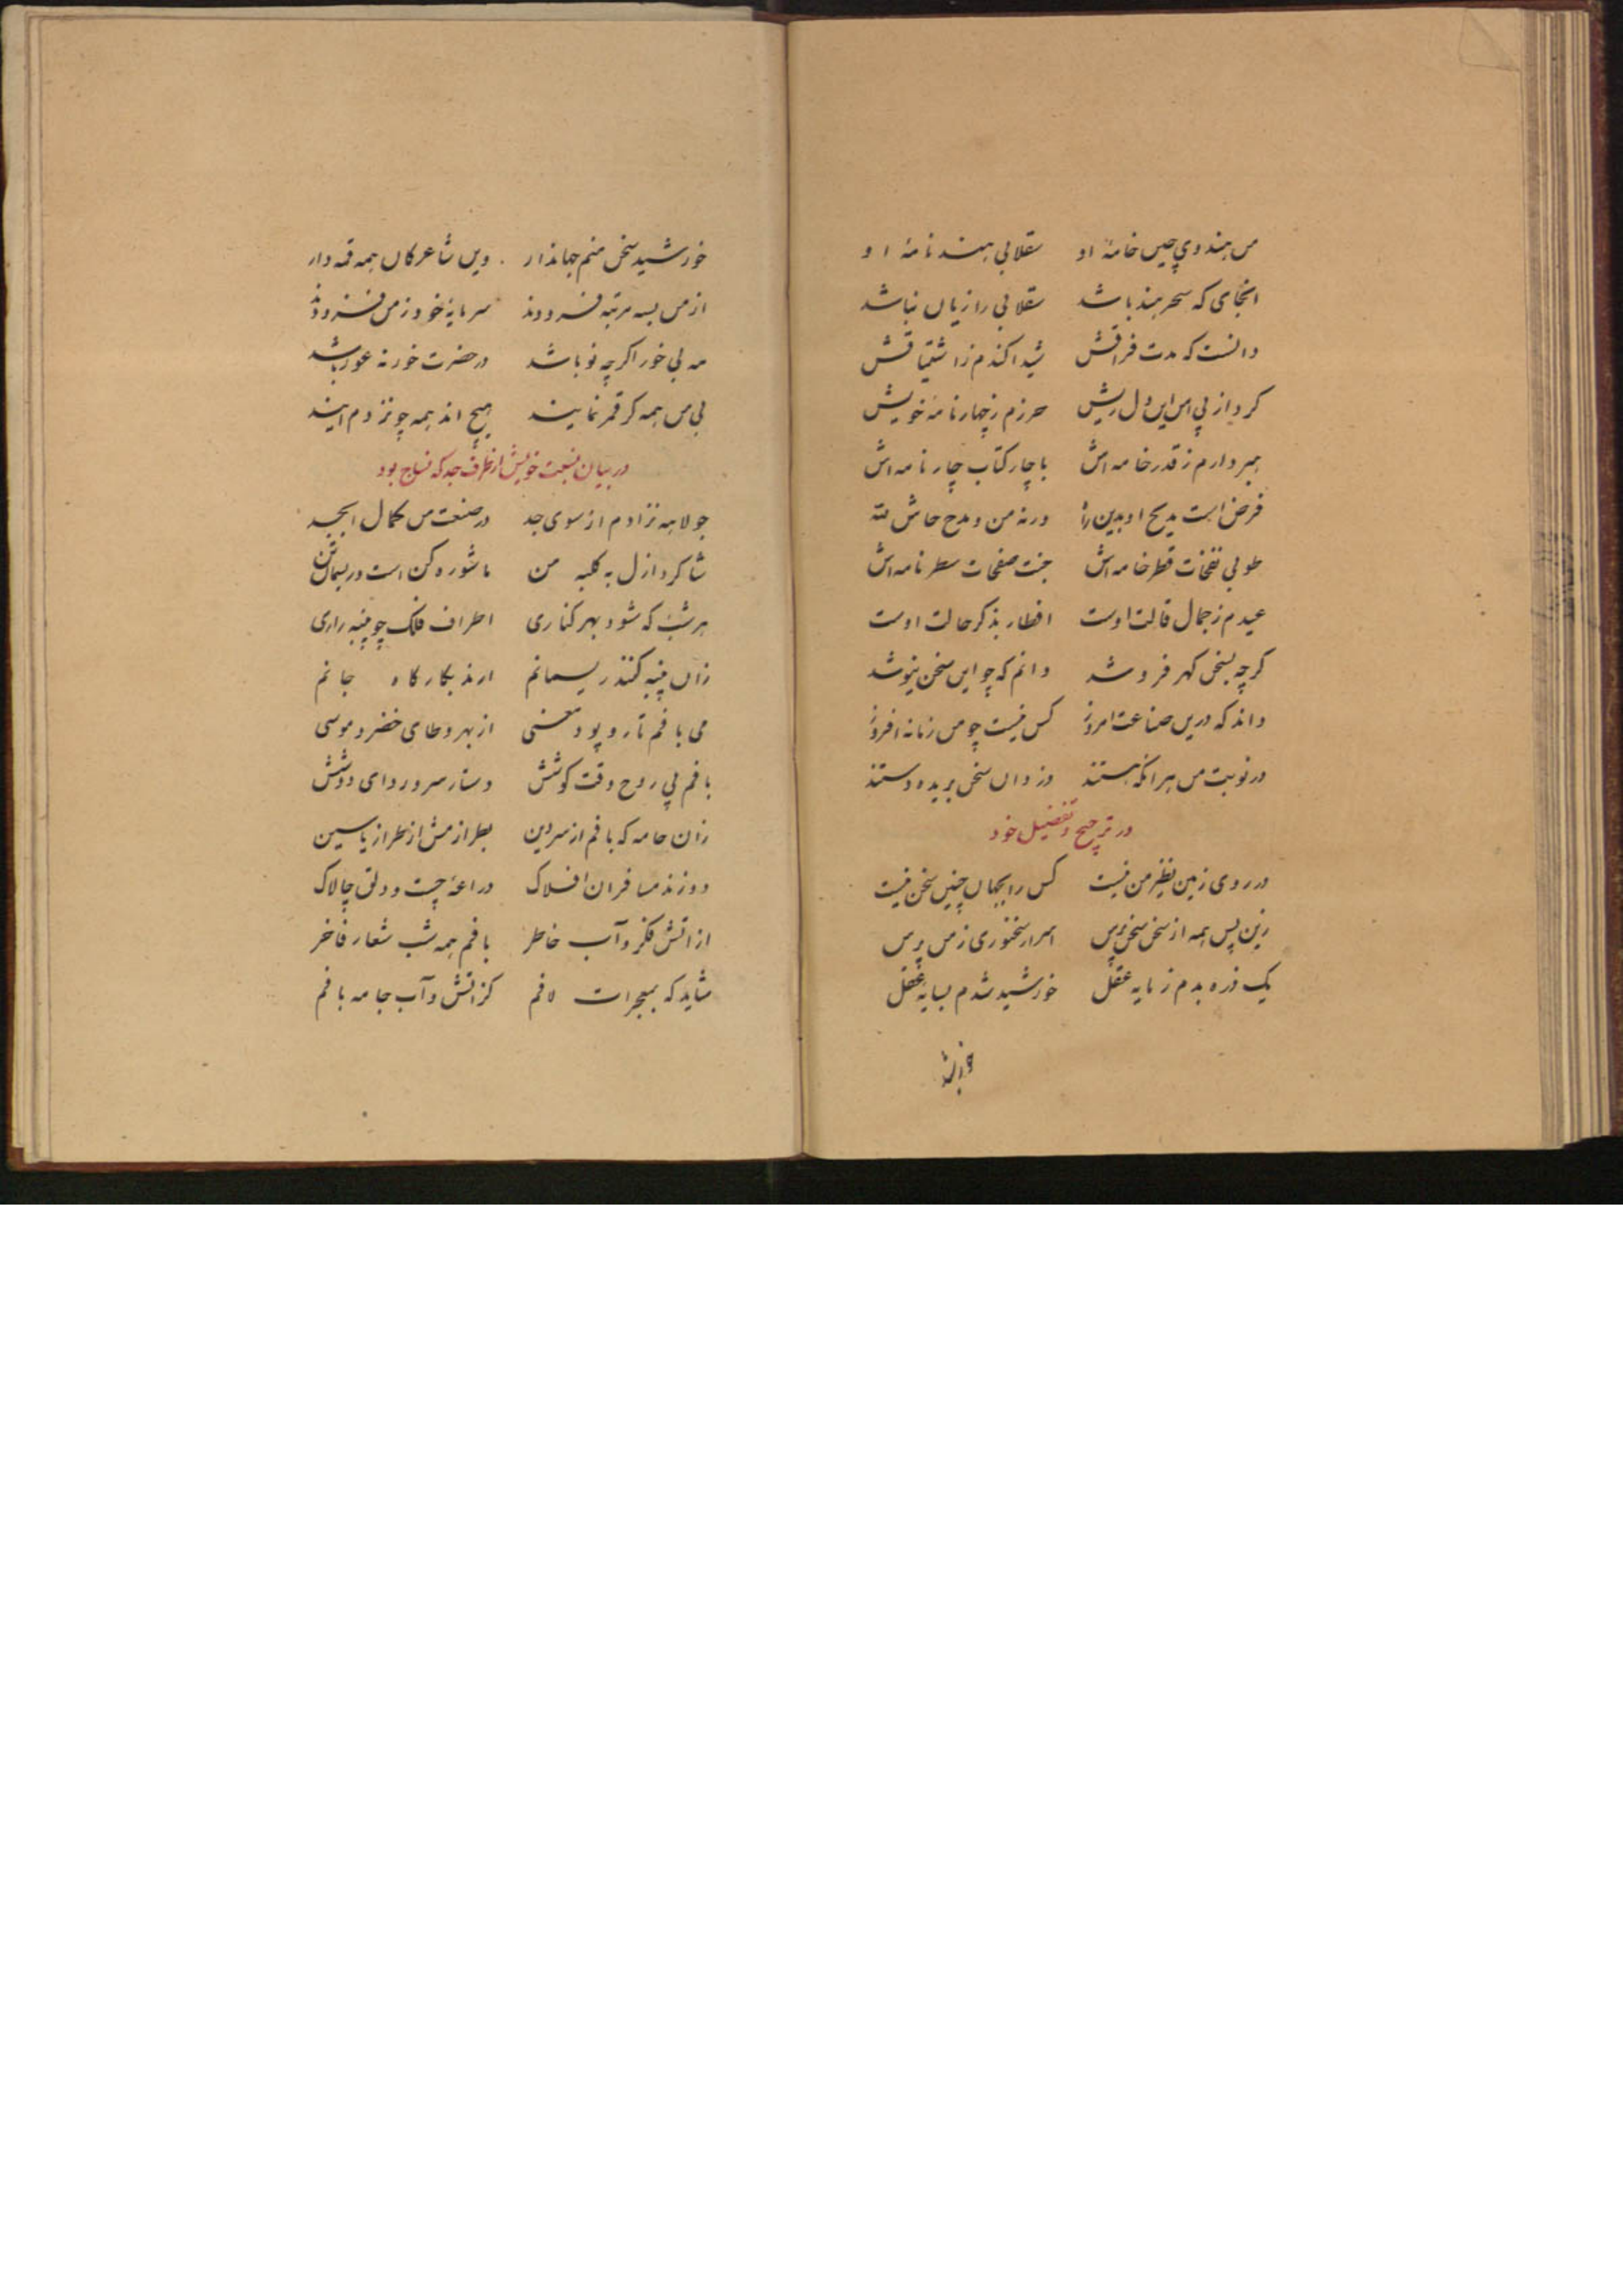 من هندوی چین خامهٔ او سقلابی هند نامهٔ او
انجای که سحر هند باشد سقلابی را زیان نباشد
دانست که مدت فراقش شیدا کندم ز اشتیاقش
کرد از پی امن این دل ریش حرزم ز چهار نامهٔ خویش
بردارم ز قدر خامه اش با چار کتاب چار نامه اش
فرض است مدیح او بدین راه ورنه من و مدح حاش لله
طوبی نفخات قطر خامه اش جنت صفحات سطر نامه اش
عیدم ز جمال قالت اوست افطار بذکر حالت اوست
کرچه بسخن کهر فروشد دانم که چو این سخن نیوشد
داند که درین صناعت امروز کس نیست چو من زمانه افروز
در نوبت من هر انکه هستند دزدان سخن بریده دستند
در ترجیح و تفضیل خود
در روی زمین نظیر من نیست کس را بجهان چنین سخن نیست
زین پس همه از سخن سخن پرس اسرار سخنوری ز من پرس
یک ذره بدم ز مایه عقل خورشید شدم بسایه عقل
خورشید سخن منم جهاندار وین شاعرکان همه قمروار
از من بسه مرتبه فزودند سرمایهٔ خود ز من فزودند
مه بی خور اگرچه نو باشد در حضرت خور نه عور باشد
بی من همه کر قمر نمایند هیچ اند همه چو نزدم ایند
در بیان نسبت خویش از طرف جد که نساج بود
جولاهه نژادم از سوی جد در صنعت من کمال ابجد
شاکرد ازل به کلبه من ماشوره کن است و ریسمان تن
هر شب که شود بهر کناری اطراف فلک چو پنبه زاری
زان پنبه کنند ریسمانم ارند بکارگاه جانم
می بافم تار و پود معنی از بهر دو طای خضر و موسی
بافم پی روح وقت کوشش دستار سر و ردای دوشش
زان جامه که بافم از سر دین بطرازمش از طراز یاسین
دوزند مسافران افلاک دراعهٔ چست و دلق چالاک
از اتش فکر و آب خاطر بافم همه شب شعار فاخر
شاید که بمعجزات لافم کز اتش و آب جامه بافم